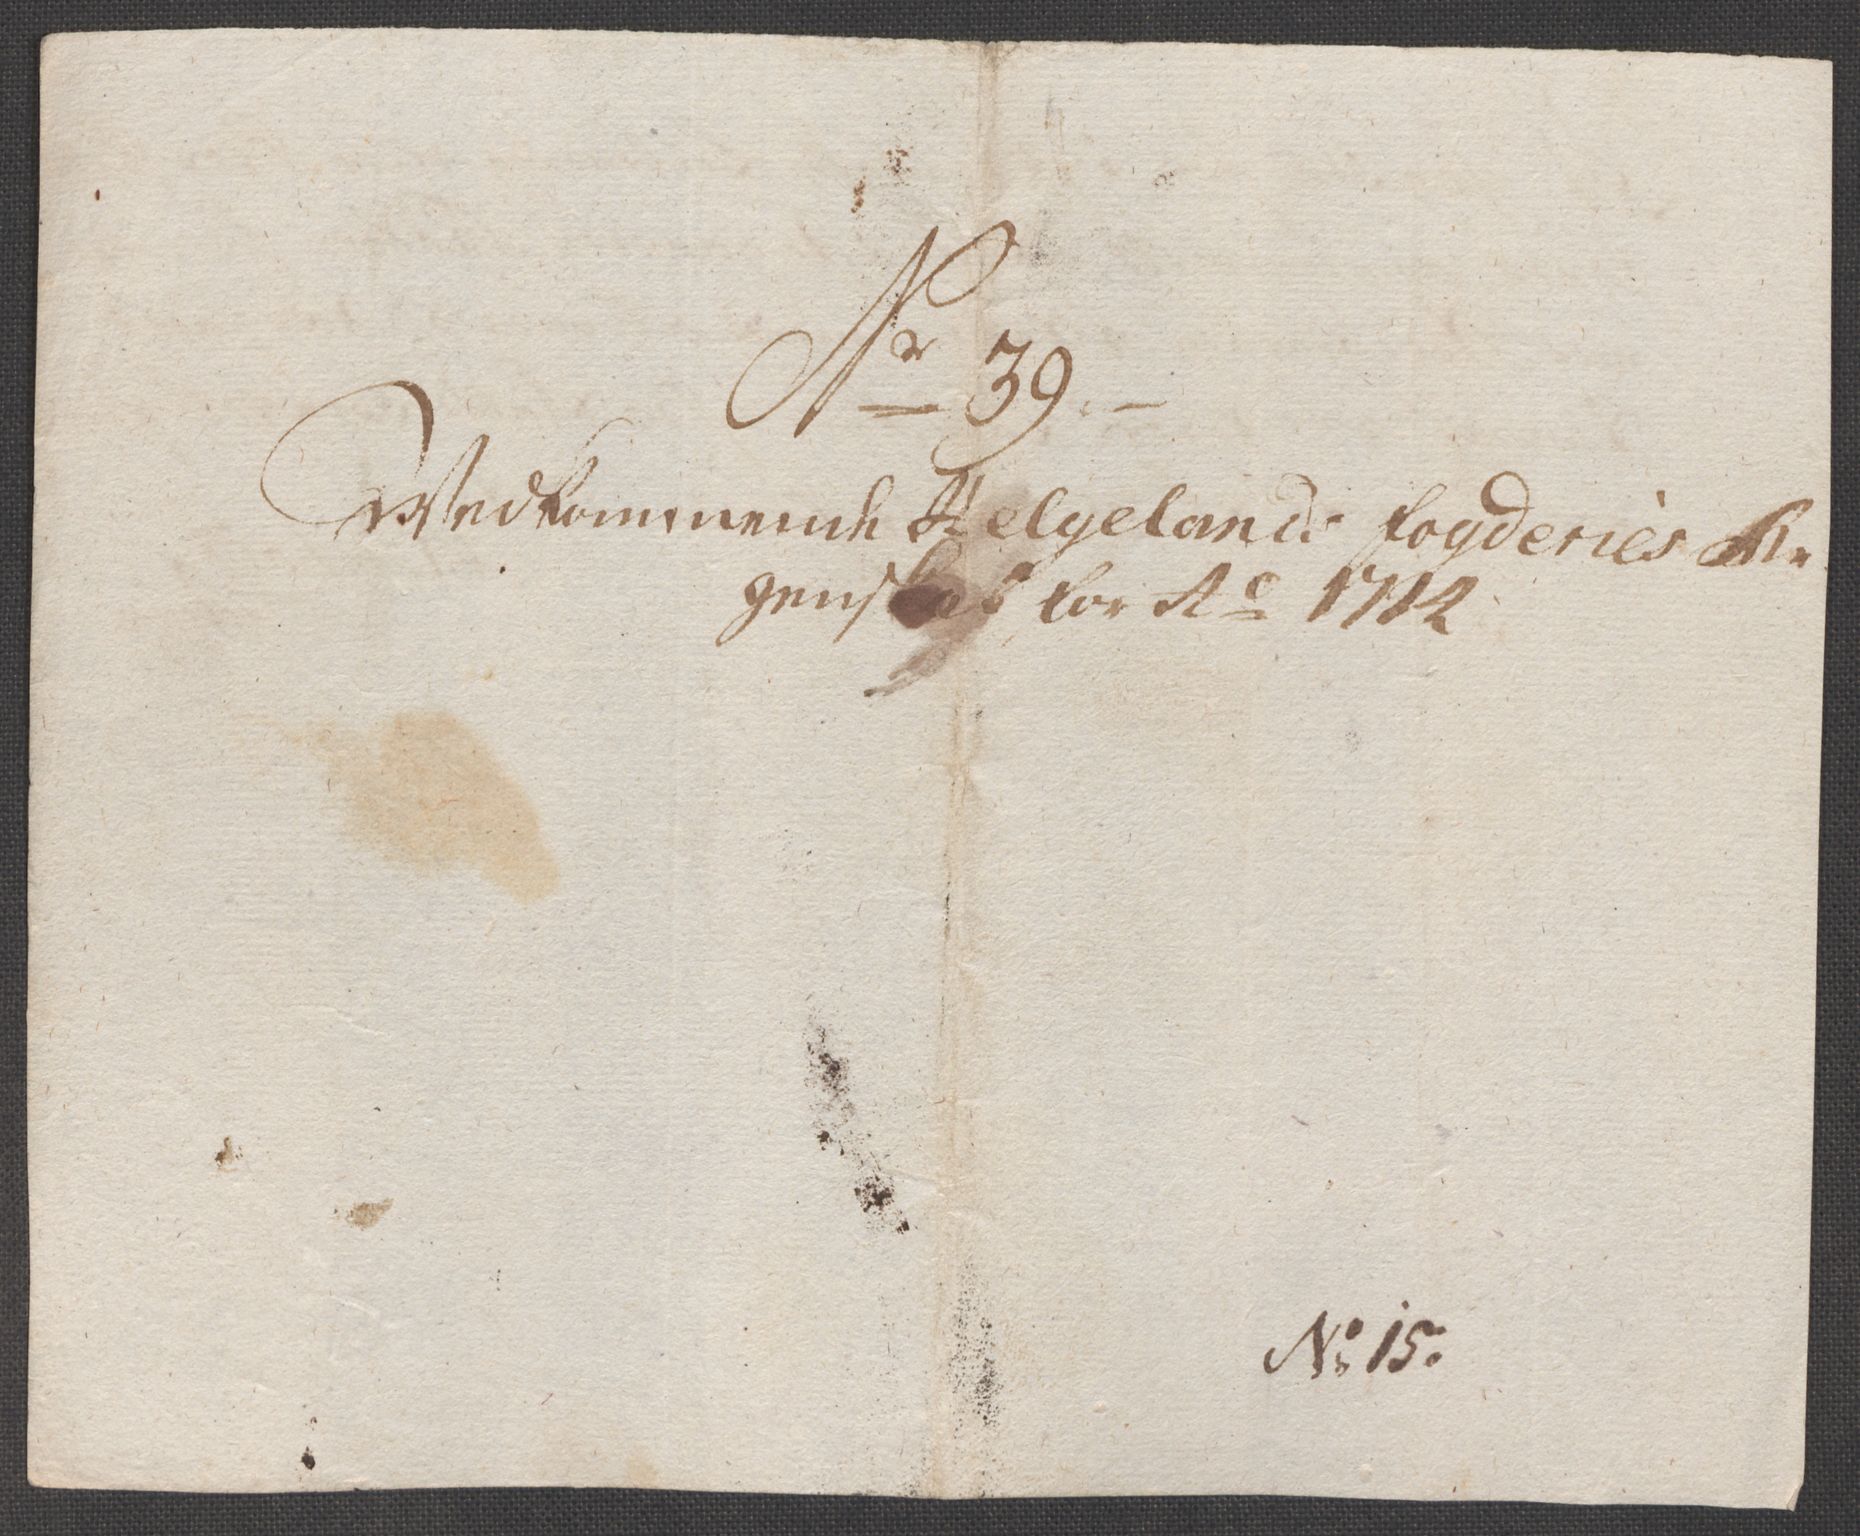 Nr 39.
Wedkommende Helgelands fogderies Re-
genskab for Ao 1712
No 15.